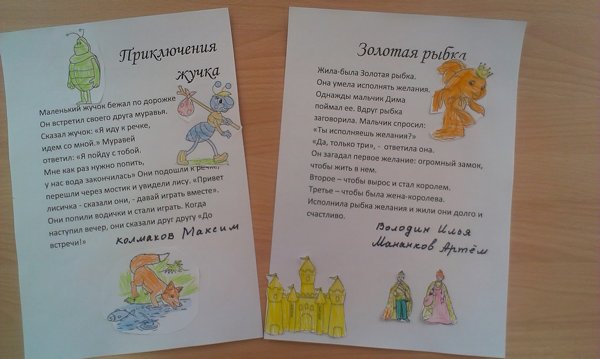 Приключения
жучка
Маленький жучок бежал по дорожке
Он встретил своего друга муравья.
Сказал жучок: «Я иду к речке,
идем со мной.» Муравей
ответил: «Я пойду с тобой.
Мне как раз нужно попить,
у нас вода закончилась» Они подошли к речке,
перешли через мостик и увидели лису. «Привет
лисичка - сказали они, - давай играть вместе».
Они попили водички и стали играть. Когда
наступил вечер, они сказали друг другу «До
встречи!»
Колмаков Максим
Золотая рыбка
Жила-была Золотая рыбка.
Она умела исполнять желания.
Однажды мальчик Дима
поймал ее. Вдруг рыбка
заговорила. Мальчик спросил:
«Ты исполняешь желания?»
«Да, только три», - ответила она.
Он загадал первое желание: огромный замок,
чтобы жить в нем.
Второе – чтобы вырос и стал королем.
Третье – чтобы была жена-королева.
Исполнила рыбка желания и жили они долго и
счастливо.
Володин Илья
Мананков Артём